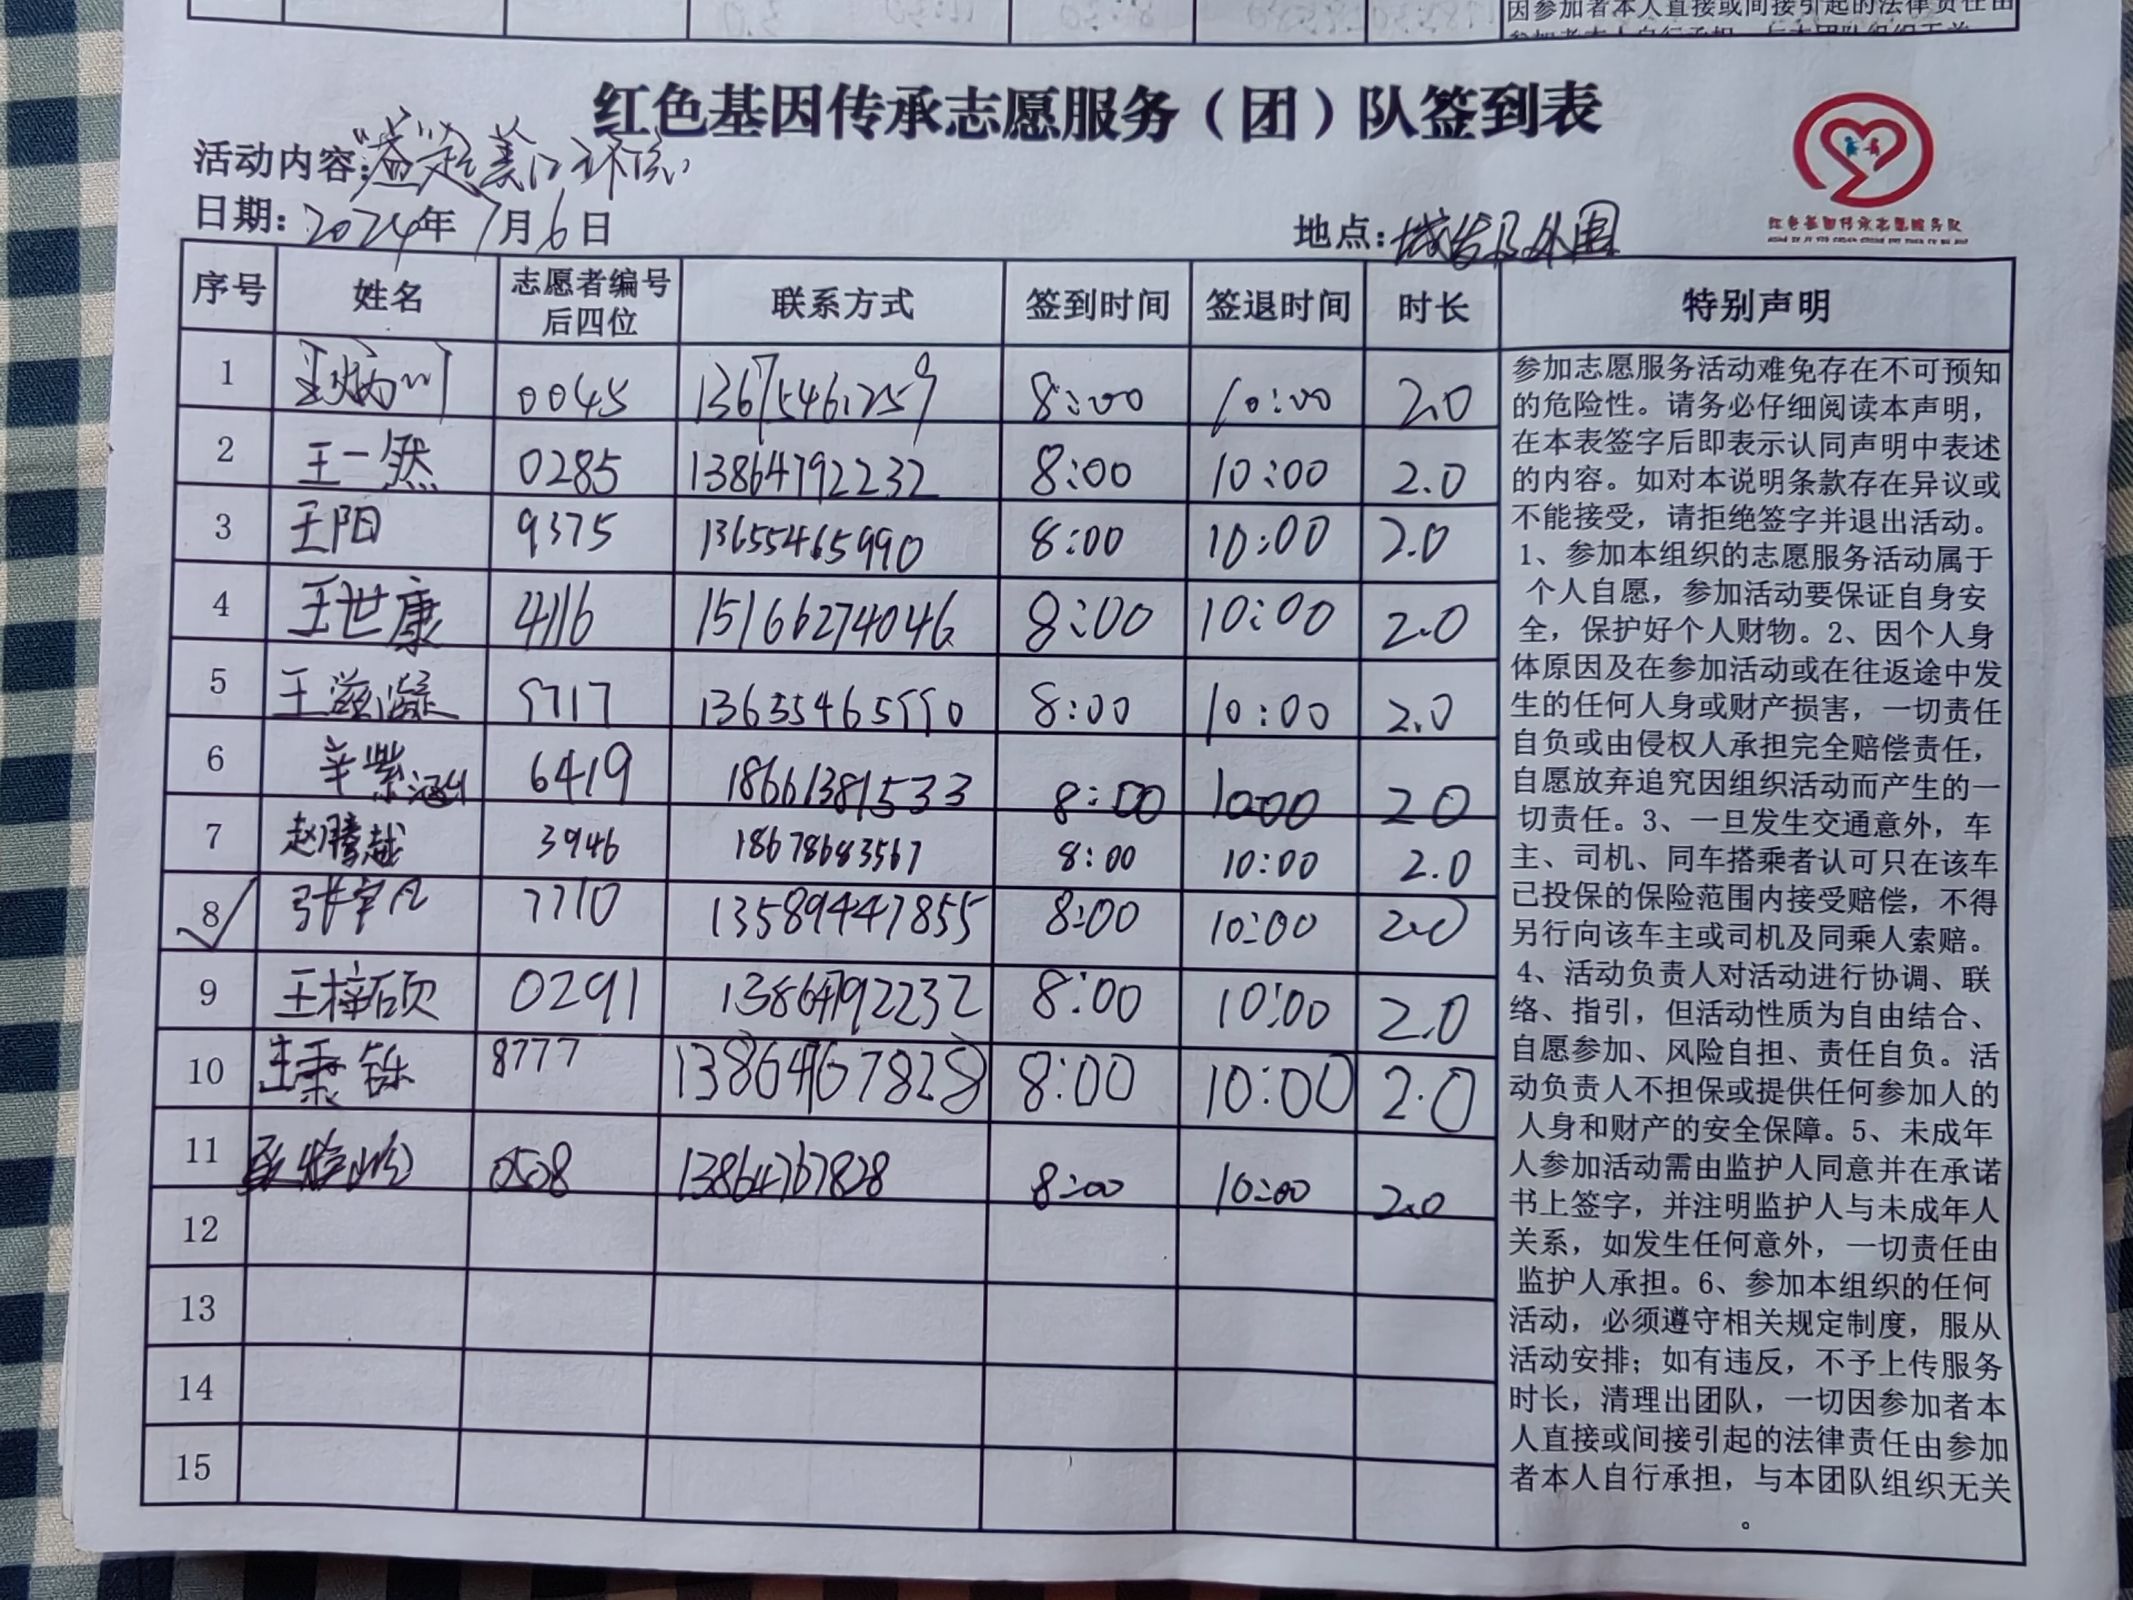 因参加者本人直接或间接引起的法律责任由
红色基因传承志愿服务（团）队签到表
活动内容：
日期：2024年7月6日
地点：城发及外围
红色基因传承志愿服务队
序号 姓名 志愿者编号后四位 联系方式 签到时间 签退时间 时长 特别声明
1 0045 13675461259 8:00 10:00 2.0
2 王一然 0285 13864792232 8:00 10:00 2.0
3 王阳 9375 13655465990 8:00 10:00 2.0
4 王世康 4116 15166274046 8:00 10:00 2.0
5 王滋凝 9717 13655465990 8:00 10:00 2.0
6 辛紫涵 6419 18661381533 8:00 10:00 2.0
7 赵腾越 3946 18678683567 8:00 10:00 2.0
8 张宇凡 7710 13589447855 8:00 10:00 2.0
9 王梓硕 0291 13864792232 8:00 10:00 2.0
10 王秉铄 8777 13864767828 8:00 10:00 2.0
11 0508 13864767828 8:00 10:00 2.0
12
13
14
15
参加志愿服务活动难免存在不可预知
的危险性。请务必仔细阅读本声明，
在本表签字后即表示认同声明中表述
的内容。如对本说明条款存在异议或
不能接受，请拒绝签字并退出活动。
1、参加本组织的志愿服务活动属于
个人自愿，参加活动要保证自身安
全，保护好个人财物。2、因个人身
体原因及在参加活动或在往返途中发
生的任何人身或财产损害，一切责任
自负或由侵权人承担完全赔偿责任，
自愿放弃追究因组织活动而产生的一
切责任。3、一旦发生交通意外，车
主、司机、同车搭乘者认可只在该车
已投保的保险范围内接受赔偿，不得
另行向该车主或司机及同乘人索赔。
4、活动负责人对活动进行协调、联
络、指引，但活动性质为自由结合、
自愿参加、风险自担、责任自负。活
动负责人不担保或提供任何参加人的
人身和财产的安全保障。5、未成年
人参加活动需由监护人同意并在承诺
书上签字，并注明监护人与未成年人
关系，如发生任何意外，一切责任由
监护人承担。6、参加本组织的任何
活动，必须遵守相关规定制度，服从
活动安排；如有违反，不予上传服务
时长，清理出团队，一切因参加者本
人直接或间接引起的法律责任由参加
者本人自行承担，与本团队组织无关
。